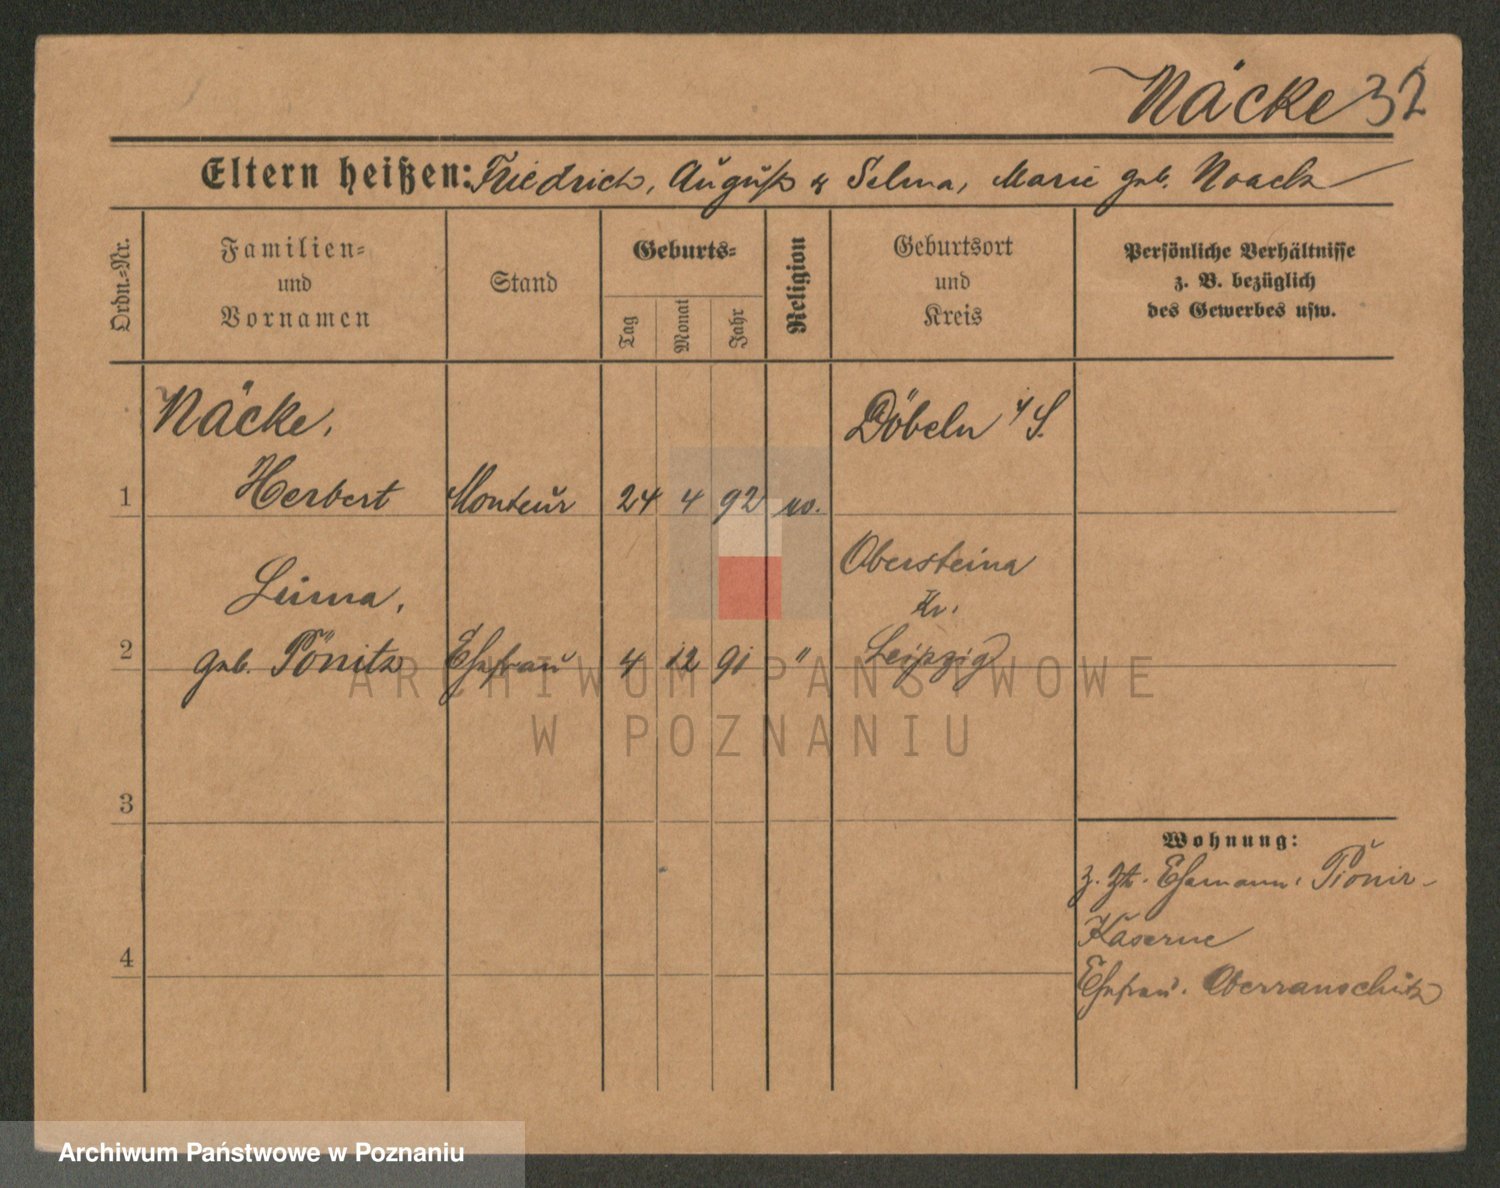 Näcke 32
Eltern heißen: Friedrich, August & Selma, Marie geb. Noack
Ordn.-Nr.
Familien-
und
Vornamen
Stand
Geburts-
Tag
Monat
Jahr
Religion
Geburtsort
und
Kreis
Persönliche Verhältnisse
z. B. bezüglich
des Gewerbes usw.
Näcke,
Döbeln i/S.
1 Herbert Monteur 24 4 92 ev.
Obersteina
Kr.
2 geb. Pönitz Ehefrau 4 12 91 " Leipzig
3
4
Wohnung:
z. Zt. Ehemann, Pionir-
Kaserne
Ehefrau. Oberranschütz
ARCHIWUM PAŃSTWOWE
W POZNANIU
Archiwum Państwowe w Poznaniu